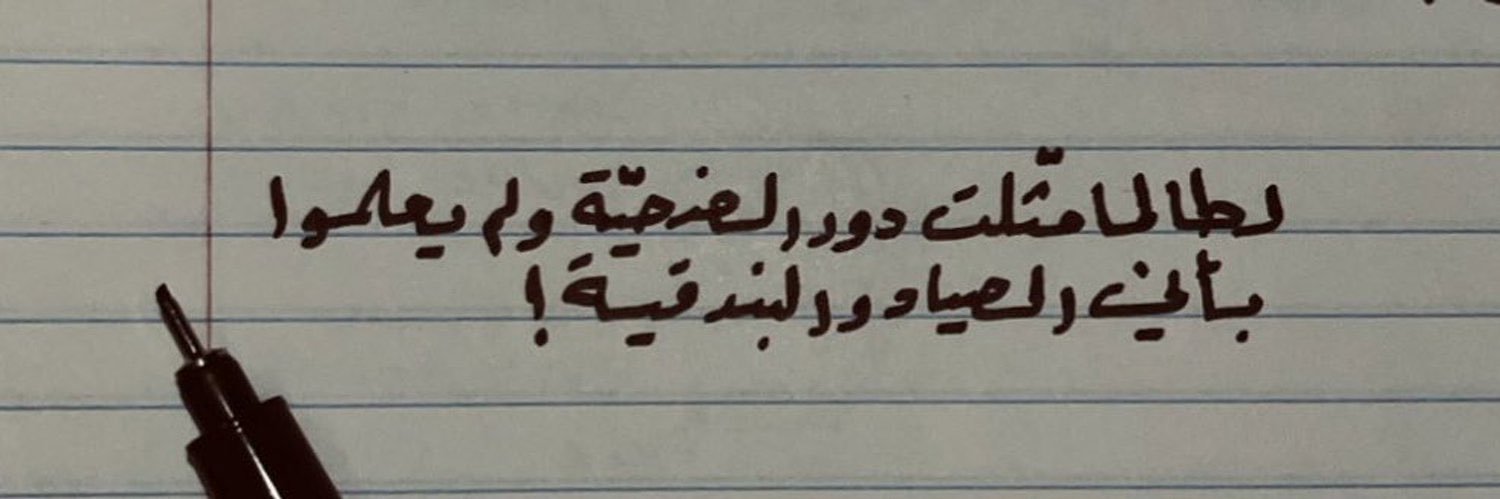 لطالما مثّلت دور الضحيّة ولم يعلموا
بأني الصياد والبندقية !